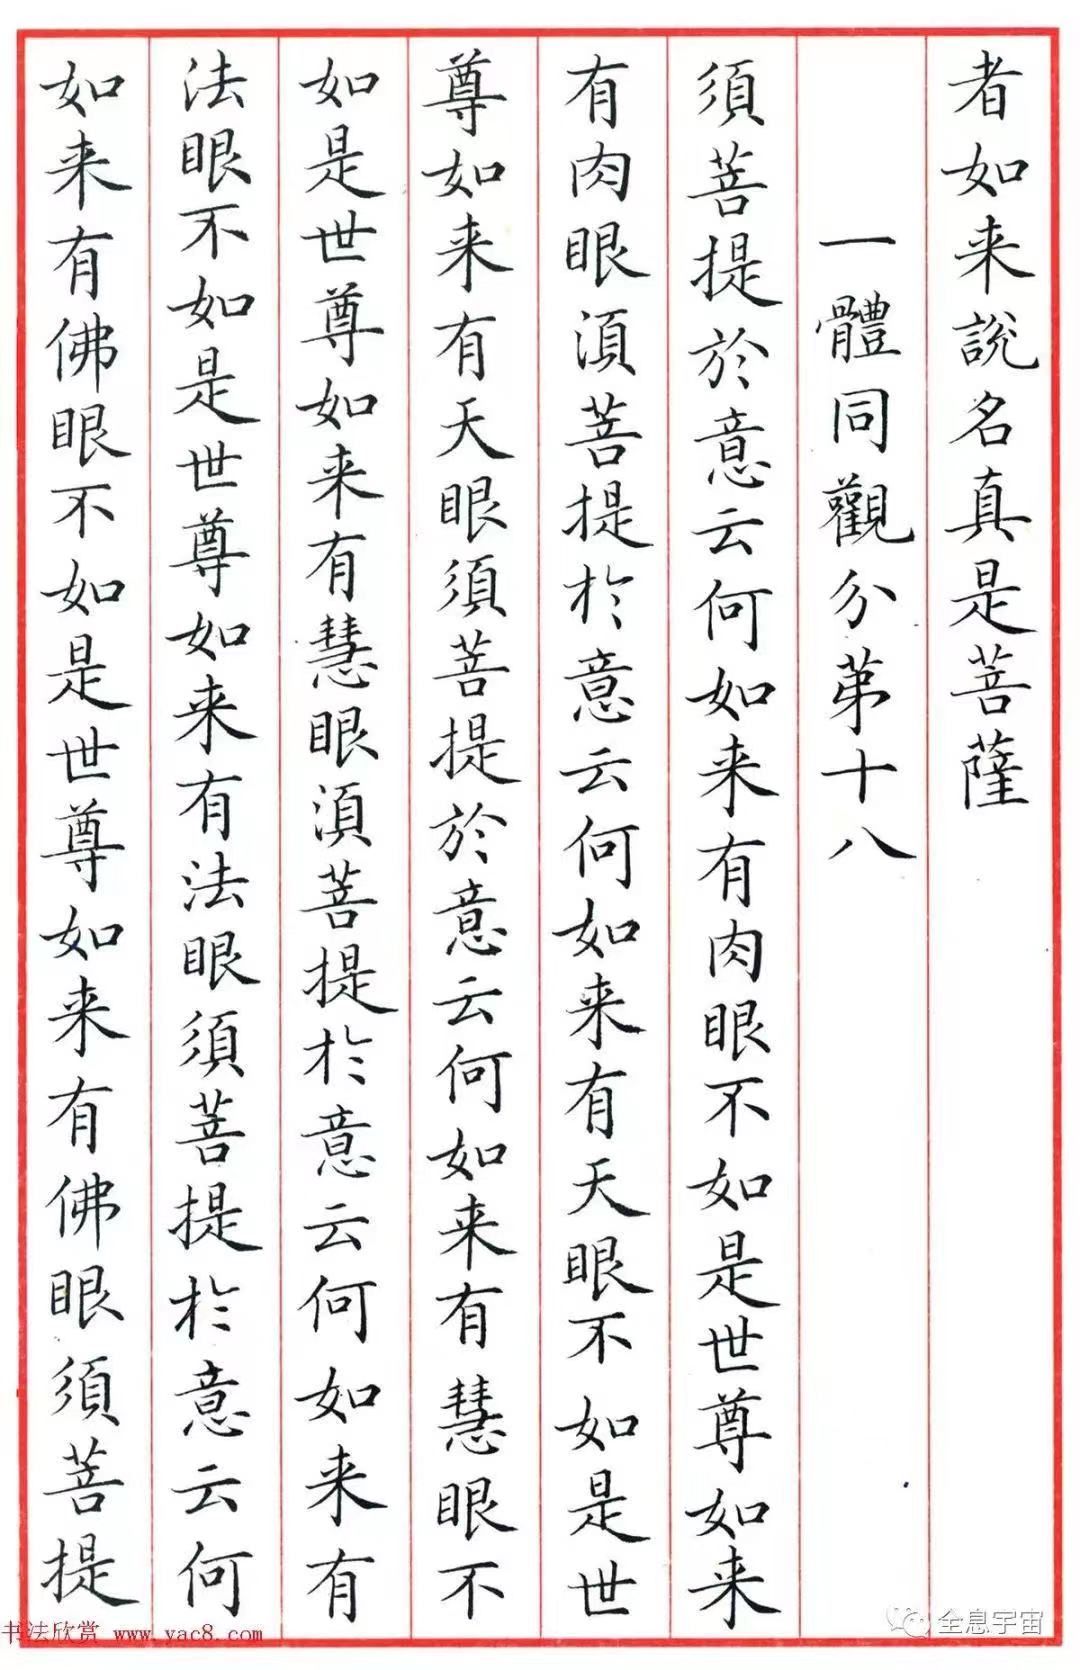 者如来說名真是菩薩
一體同觀分第十八
須菩提於意云何如来有肉眼不如是世尊如来
有肉眼須菩提於意云何如来有天眼不如是世
尊如来有天眼須菩提於意云何如来有慧眼不
如是世尊如来有慧眼須菩提於意云何如来有
法眼不如是世尊如来有法眼須菩提於意云何
如来有佛眼不如是世尊如来有佛眼須菩提
书法欣赏 www.yac8.com
全息宇宙